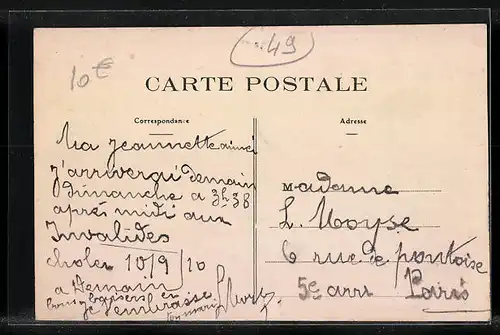 49
10€
CARTE POSTALE
Correspondance
Adresse
Ma jeannette aimé
j'arriverai demain
dimanche a 3h38
après midi aux
Invalides
cholet 10/9/10
a Demain
bons baisers
je t'embrasse
ton mari
Madame
L. Moyse
6 rue de pontoise
5e arr Paris